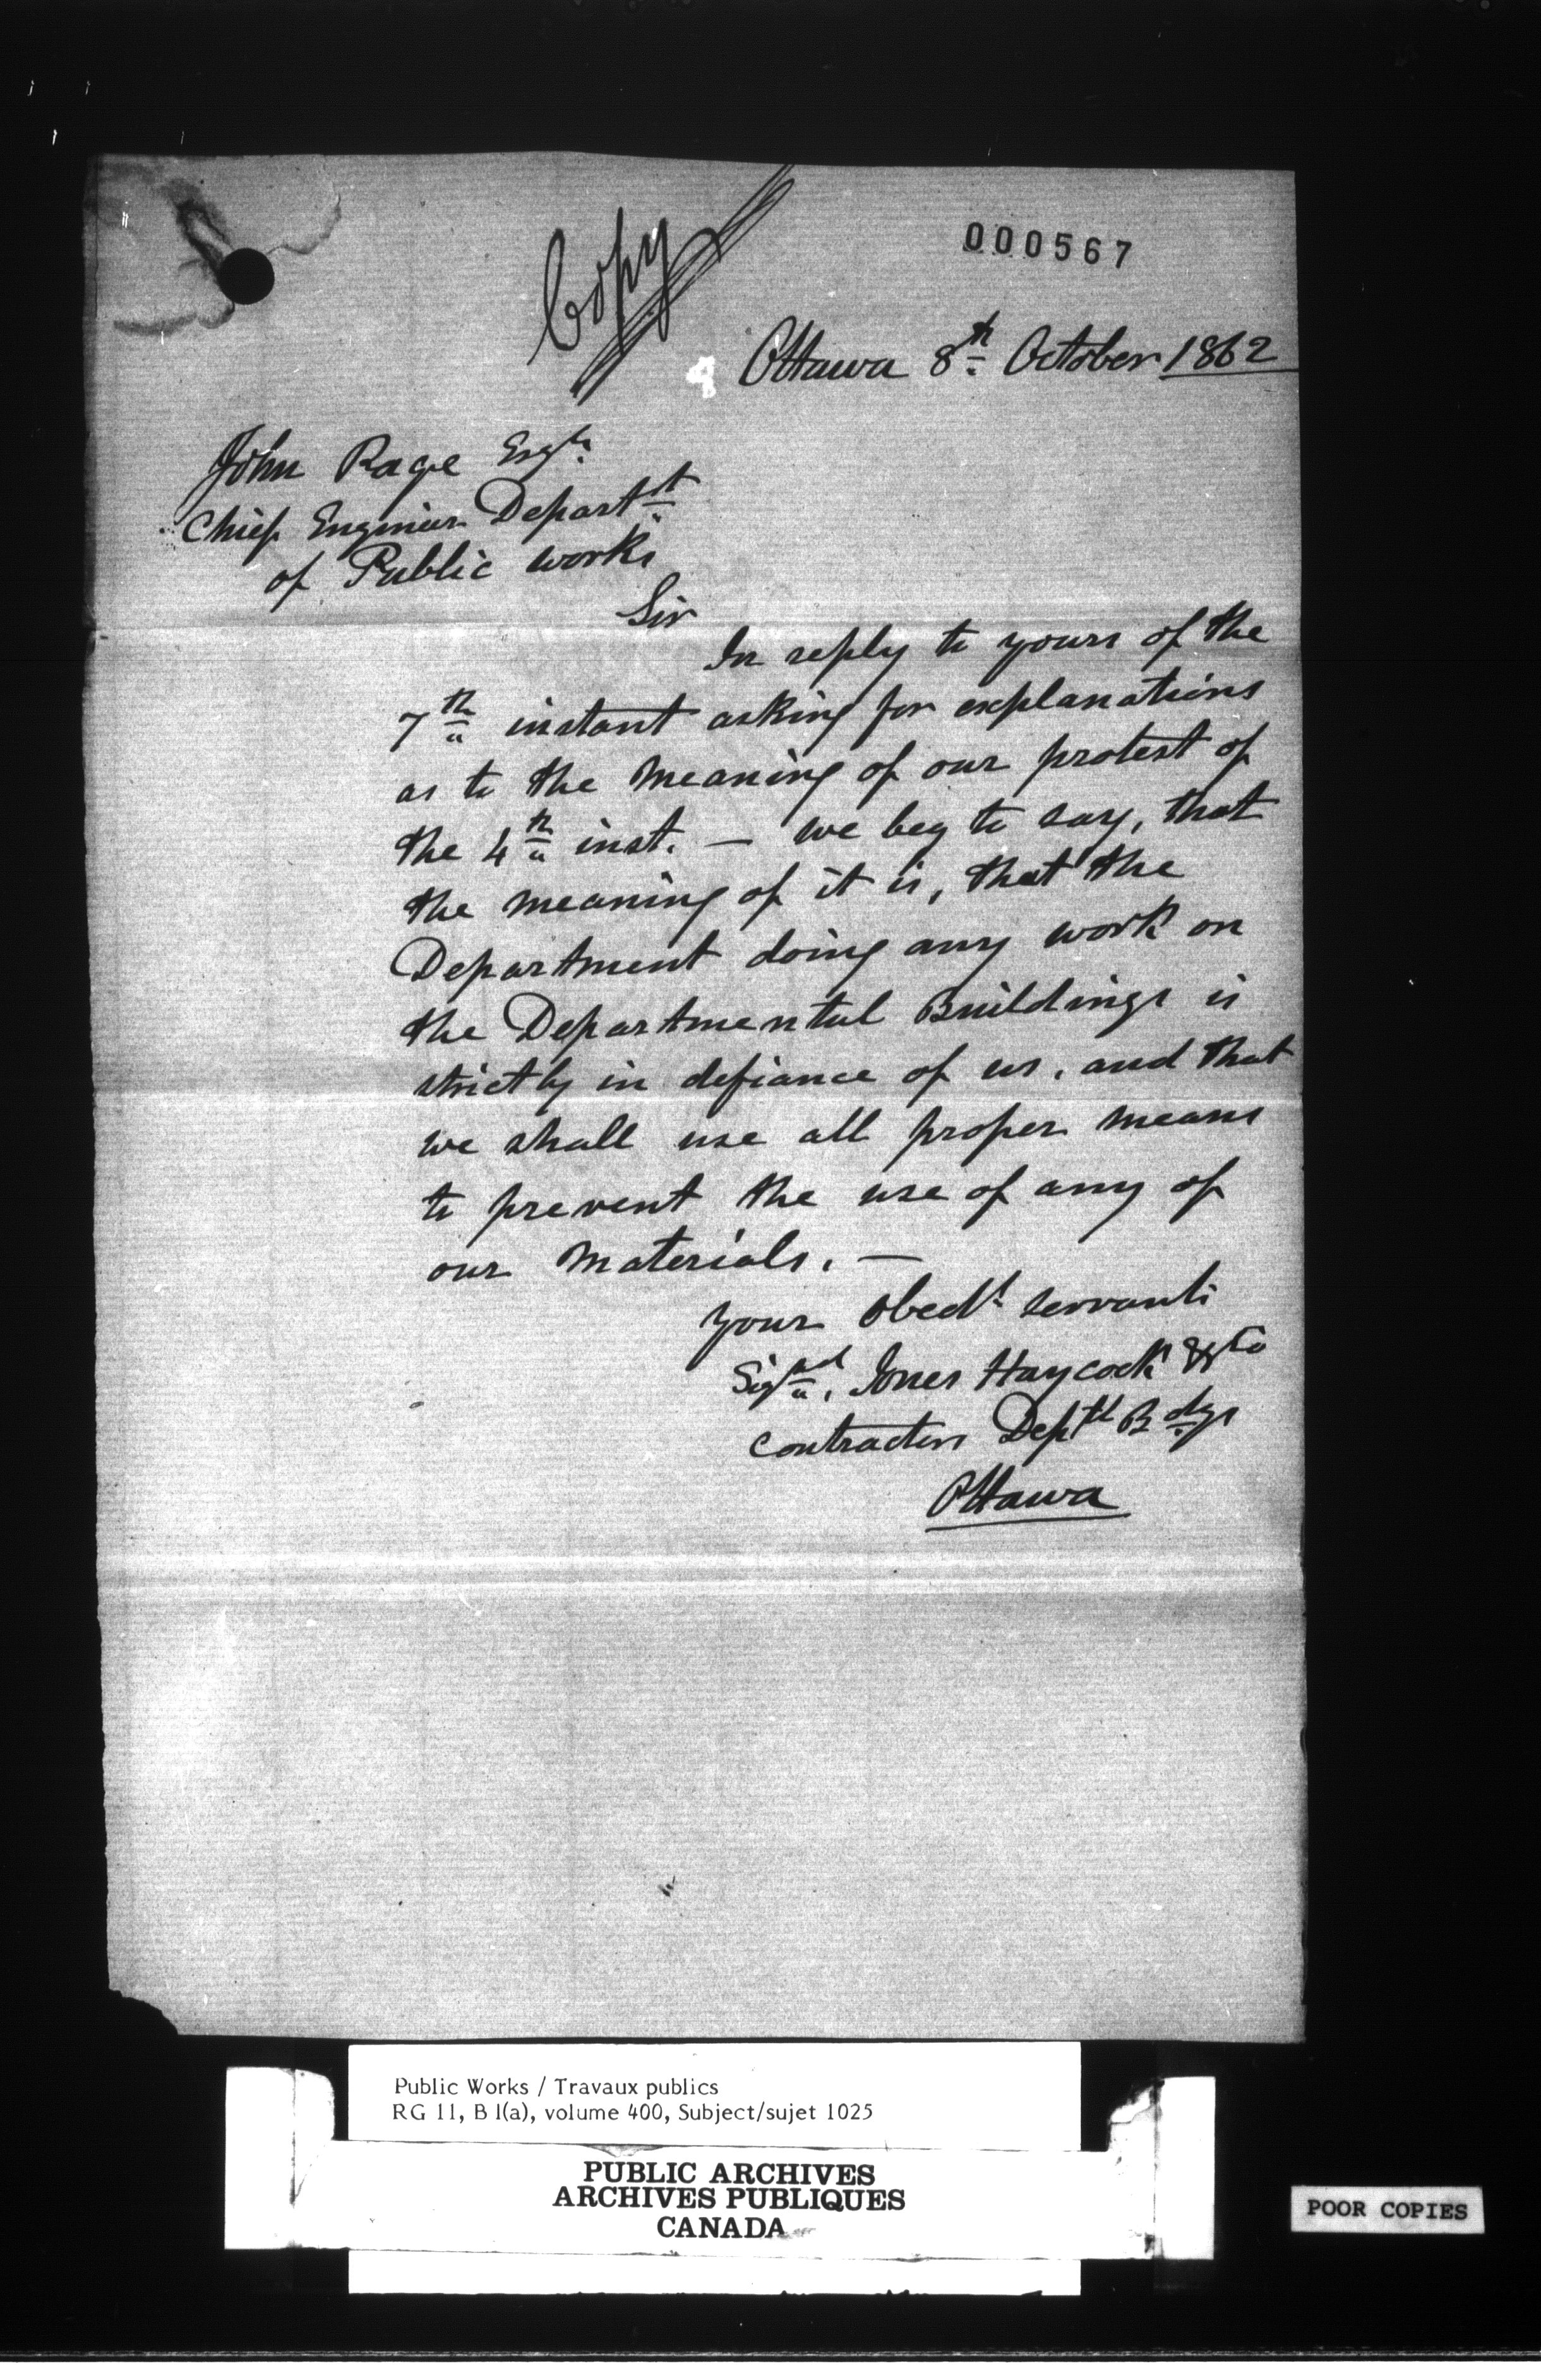 Copy
000567
Ottawa 8th October 1862
John Page Esqr.
Chief Engineer Departt
of Public works
Sir
In reply to yours of the
7th instant asking for explanations
as to the meaning of our protest of
the 4th inst. — we beg to say, that
the meaning of it is, that the
Department doing any work on
the Departmental Buildings is
strictly in defiance of us, and that
we shall use all proper means
to prevent the use of any of
our Materials. —
Your Obedt. servants
Signd, Jones Haycock & Co
Contractors Deptl Bdgs
Ottawa
Public Works / Travaux publics
RG 11, B 1(a), volume 400, Subject/sujet 1025
PUBLIC ARCHIVES
ARCHIVES PUBLIQUES
CANADA
POOR COPIES